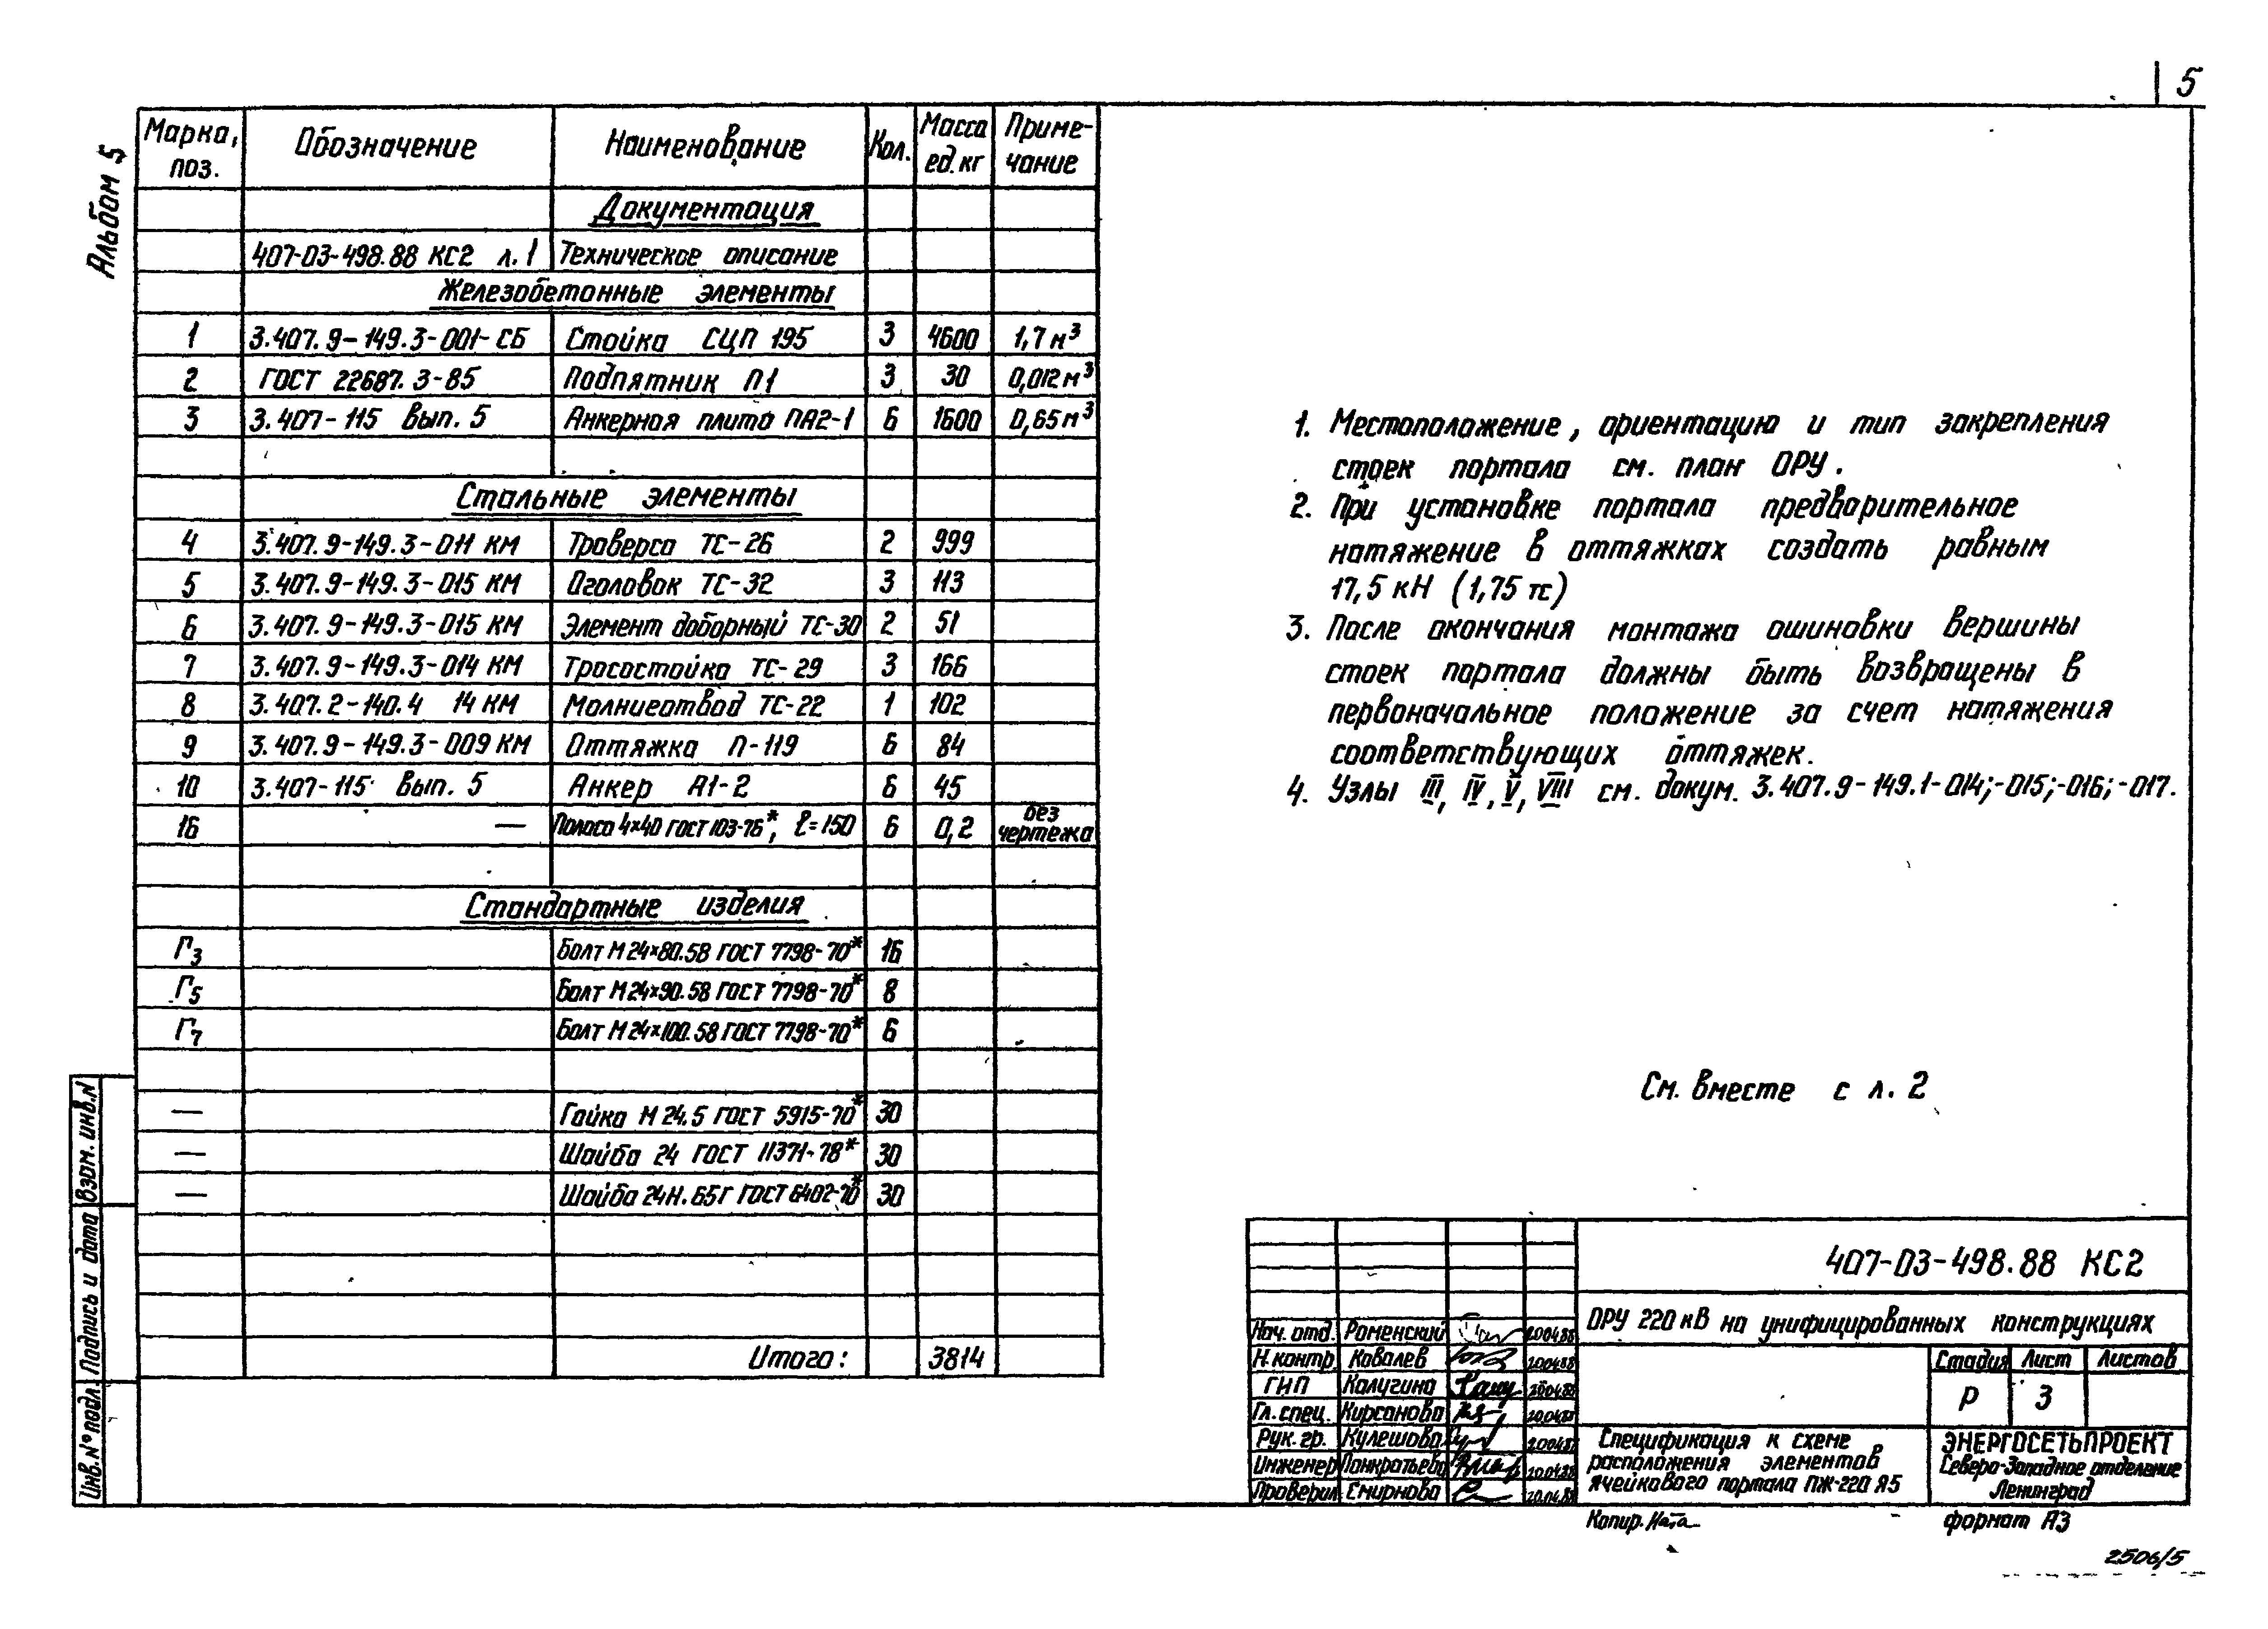 5
Альбом 5
Марка, поз. Обозначение Наименование Кол. Масса ед. кг Примечание
Документация
407-03-498.88 КС2 л.1 Техническое описание
Железобетонные элементы
1 3.407.9-149.3-001-СБ Стойка СЦП 195 3 4600 1,7 м³
2 ГОСТ 22687.3-85 Подпятник П1 3 30 0,012 м³
3 3.407-115 вып. 5 Анкерная плита ПА2-1 6 1600 0,65 м³
Стальные элементы
4 3.407.9-149.3-011 КМ Траверса ТС-26 2 999
5 3.407.9-149.3-015 КМ Оголовок ТС-32 3 113
6 3.407.9-149.3-015 КМ Элемент доборный ТС-30 2 51
7 3.407.9-149.3-014 КМ Тросостойка ТС-29 3 166
8 3.407.2-140.4 14 КМ Молниеотвод ТС-22 1 102
9 3.407.9-149.3-009 КМ Оттяжка П-119 6 84
10 3.407-115 вып. 5 Анкер А1-2 6 45
16 — Полоса 4×40 ГОСТ 103-76*, ℓ=150 6 0,2 без чертежа
Стандартные изделия
Г3 Болт М24×80.58 ГОСТ 7798-70* 16
Г5 Болт М24×90.58 ГОСТ 7798-70* 8
Г7 Болт М24×100.58 ГОСТ 7798-70* 6
— Гайка М24.5 ГОСТ 5915-70* 30
— Шайба 24 ГОСТ 11371-78* 30
— Шайба 24Н.65Г ГОСТ 6402-70* 30
Итого: 3814
1. Местоположение, ориентацию и тип закрепления
стоек портала см. план ОРУ.
2. При установке портала предварительное
натяжение в оттяжках создать равным
17,5 кН (1,75 тс)
3. После окончания монтажа ошиновки вершины
стоек портала должны быть возвращены в
первоначальное положение за счет натяжения
соответствующих оттяжек.
4. Узлы III, IV, V, VIII см. докум. 3.407.9-149.1-014;-015;-016;-017.
См. вместе с л. 2
407-03-498.88 КС2
ОРУ 220 кВ на унифицированных конструкциях
Нач. отд. Роменский 20.04.88
Н. контр. Ковалев 20.04.88
ГИП Калугина 20.04.88
Гл. спец. Кирсанова 20.04.88
Рук. гр. Кулешова 20.04.88
Инженер Панкратьева 20.04.88
Проверил Смирнова 20.04.88
Стадия Лист Листов
Р 3
Спецификация к схеме
расположения элементов
ячейкового портала ПЖ-220 Я5
ЭНЕРГОСЕТЬПРОЕКТ
Северо-Западное отделение
Ленинград
Копир. Ната
формат А3
2506/5
Взам. инв. N
Подпись и дата
Инв. № подл.